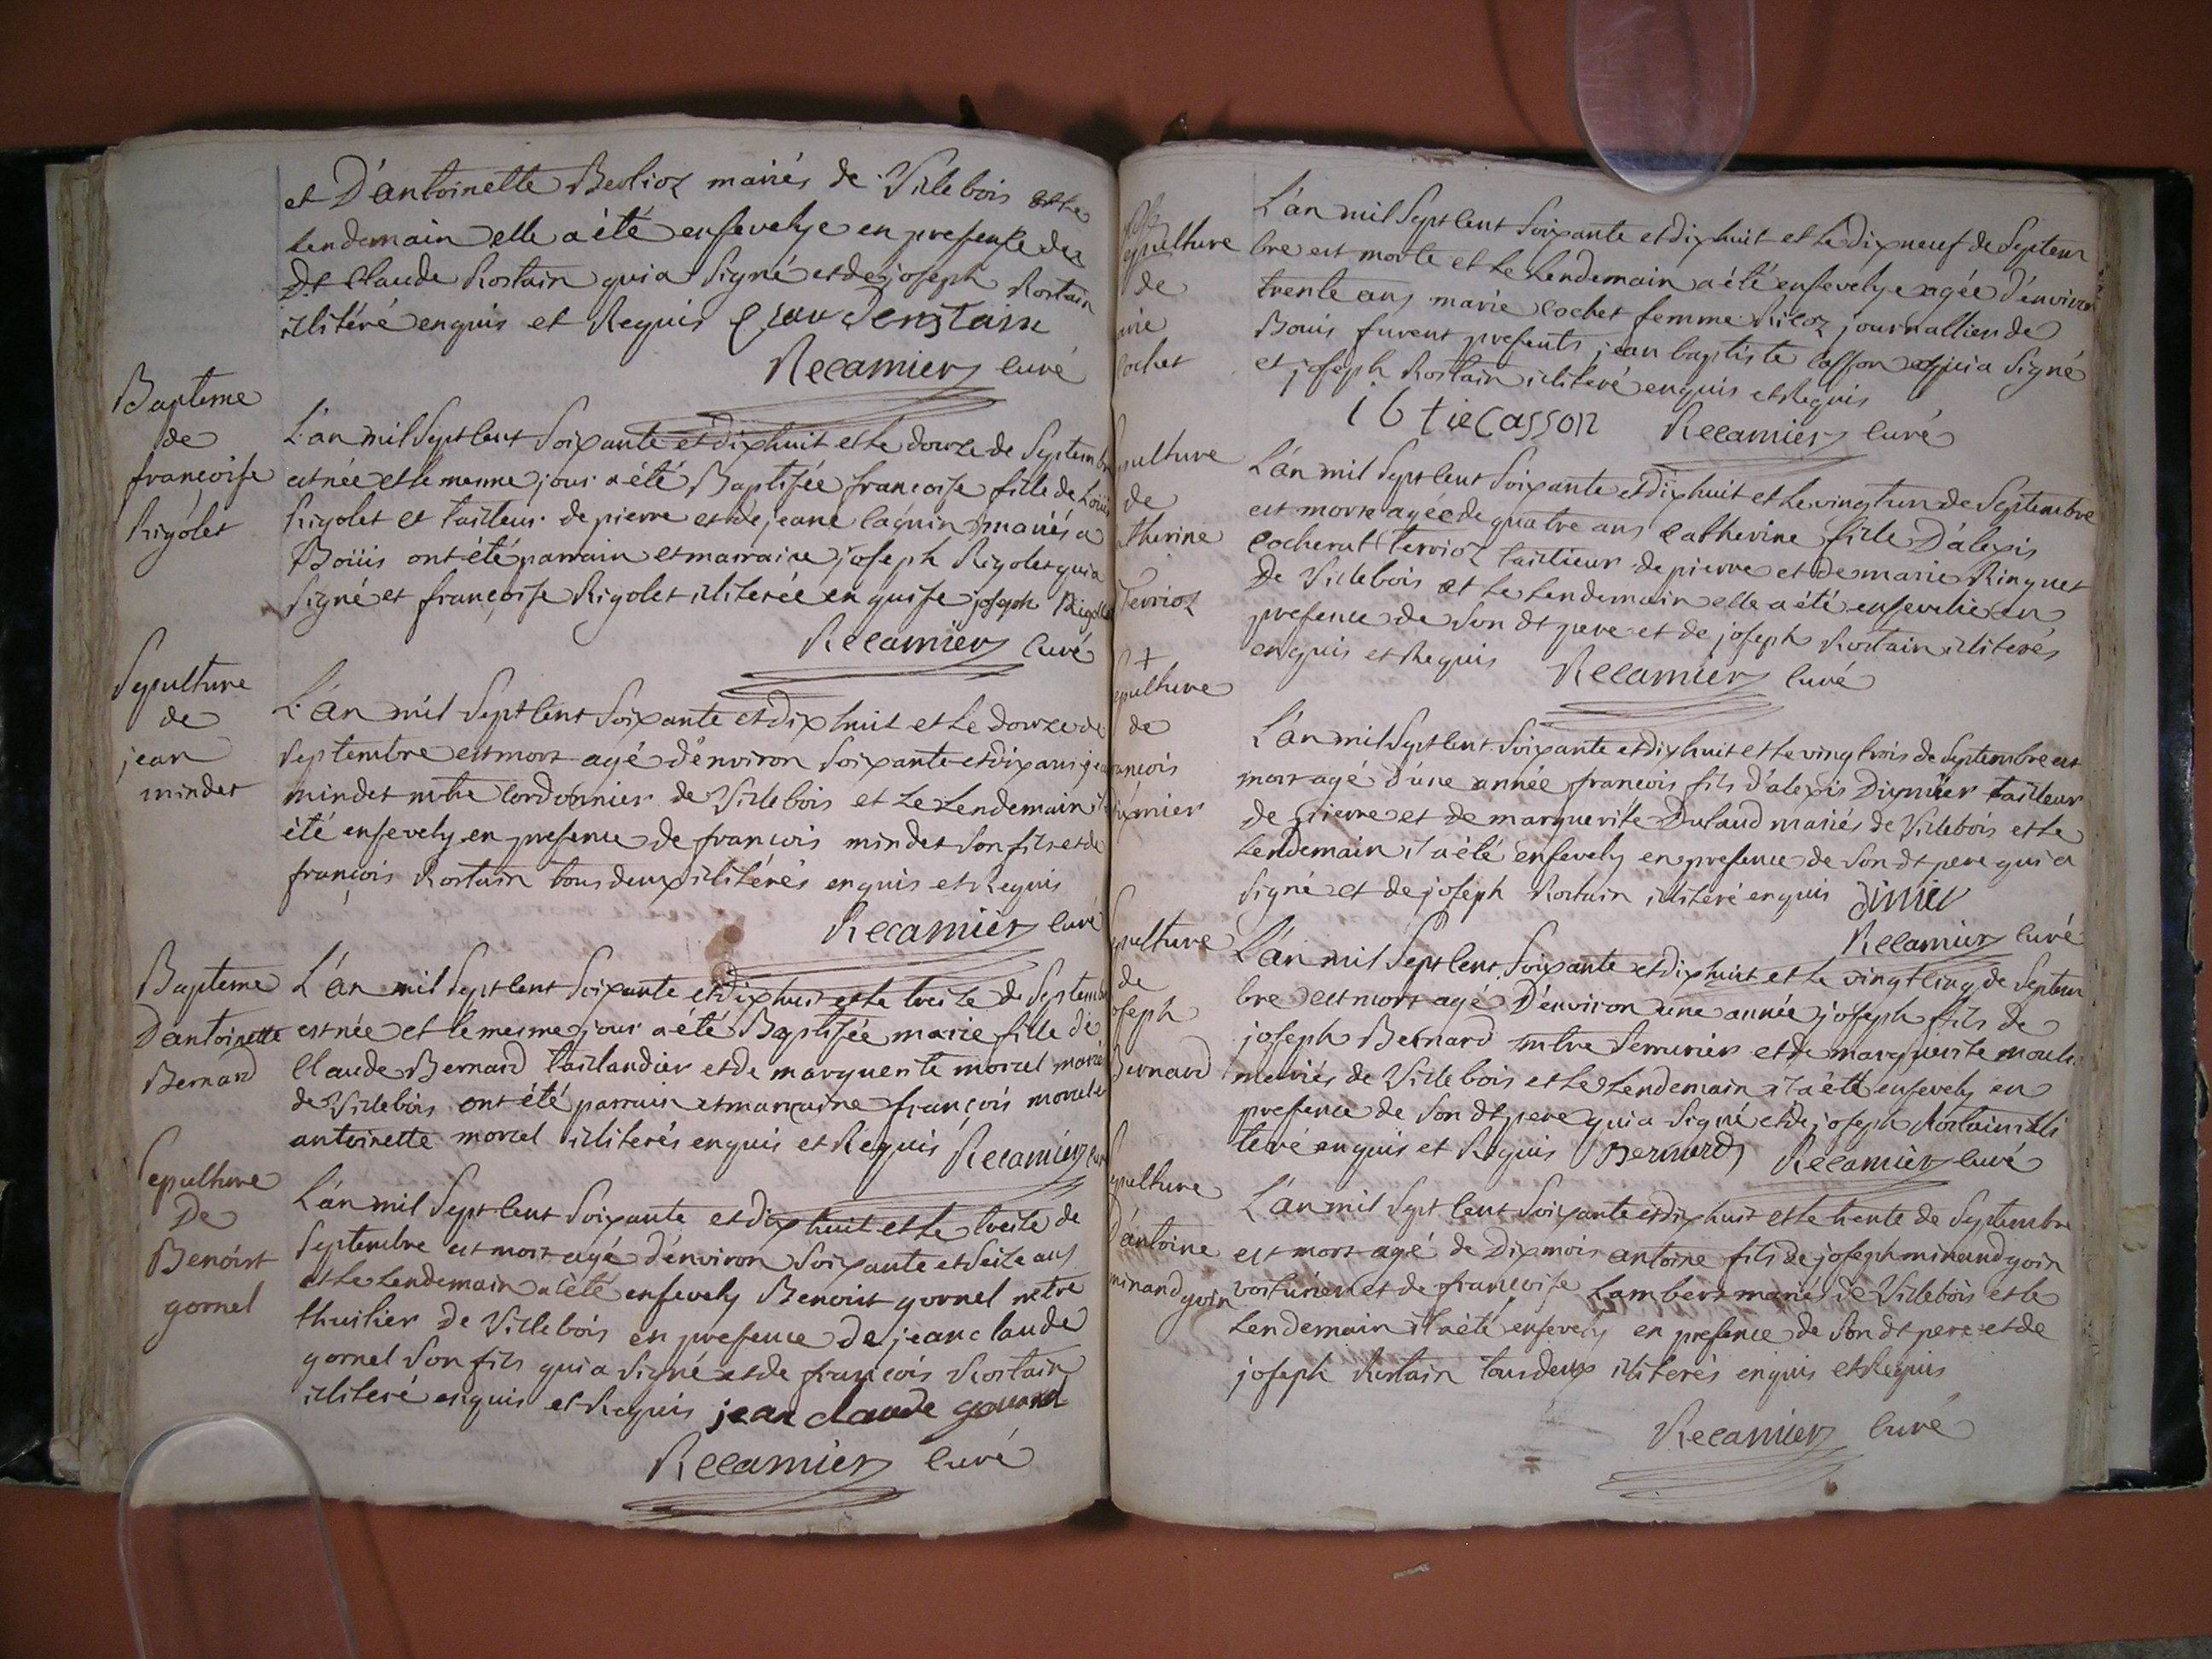 et D'antoinette Berlioz mariés de Villebois et le
Lendemain elle a été ensevelye en presence de
Dt Claude Rostain qui a signé et de joseph Rostain
illitéré enquis et Requis
Recamier Curé
Bapteme
de
francoise
Rigolet
L'an mil Sept Cent Soixante et dixhuit et le douze de Septembre
est née et le mesme jour a été Baptisée francoise fille de Loüis
Rigolet et tailleur de pierre et de jeane laguin mariés a
Boüis ont été parrain et marraine joseph Rigolet qui a
signé et francoise Rigolet illiterée enquise joseph Rigollet
Recamier Curé
Sepulture
de
jean
mindet
L'an mil Sept Cent Soixante et dix huit et le douze de
Septembre est mort agé d'environ Soixante et dix ans jean
mindet mtre Cordonnier de Villebois et le Lendemain il a
été ensevely en presence de francois mindet son fils et de
francois Rostain tous deux illiterés enquis et Requis
Recamier Curé
Bapteme
D'antoinette
Bernard
L'an mil Sept Cent Soixante et dixhuit et le treize de Septembre
est née et le mesme jour a été Baptisée marie fille de
Claude Bernard taillandier et de marguerite morcel mariés
de Villebois ont été parrain et marraine francois morcel et
antoinette morcel illiterés enquis et Requis Recamier Curé
Sepulture
De
Benoist
gornel
L'an mil Sept Cent Soixante et dix huit et le treize de
Septembre est mort agé d'environ Soixante et Seize ans
et le Lendemain a été ensevely Benoist gornel mtre
thuilier de Villebois en presence de jean claude
gornel Son fils qui a Signé et de francois Rostain
illiteré enquis et Requis jean claude gournel
Recamier Curé
epulture
de
arie
Cochet
L'an mil Sept Cent Soixante et dixhuit et le dixneuf de Septem
bre est morte et le Lendemain a été ensevelye agée d'environ
trente ans marie Cochet femme journallier de
Bouis furent presents jean baptiste Casson qui a Signé
et joseph Rostain illiteré enquis et Requis
ib tie Casson Recamier Curé
pulture
de
atherine
Terrioz
L'an mil Sept Cent Soixante et dixhuit et le vingt un de Septembre
est morte agée de quatre ans Catherine fille D'alexis
Cocherat Terrioz taillieur de pierre et de marie Ringuet
De Villebois et le Lendemain elle a été ensevelie en
presence de Son dt pere et de joseph Rostain illiterés
enquis et Requis Recamier Curé
epulture
de
rancois
ixmier
L'an mil Sept Cent Soixante et dixhuit et le vingtrois de Septembre est
mort agé d'une année francois fils d'alexis Dixmier tailleur
de Pierre et de marguerite Dulaud mariés de Villebois et le
Lendemain il a été ensevely en presence de Son dt pere qui a
signé et de joseph Rostain illiteré enquis dimier
Recamier Curé
epulture
de
oseph
Bernard
L'an mil Sept Cent Soixante et dixhuit et le vingt Cinq de Septem
bre est mort agé D'environ une année joseph fils de
joseph Bernard mtre Serrurier et de marguerite
mariés de Villebois et le Lendemain il a été ensevely en
presence de Son dt pere qui a Signé et de joseph Rostain illi
teré enquis et Requis Bernard Recamier Curé
epulture
D'antoine
minandgoin
L'an mil Sept Cent Soixante et dixhuit et le trente de Septembre
est mort agé de Dix mois antoine fils de joseph minandgoin
voiturier et de francoise Lambert mariés de Villebois et le
Lendemain il a été ensevely en presence de Son dt pere et de
joseph Rostain tous deux illiterés enquis et Requis
Recamier Curé